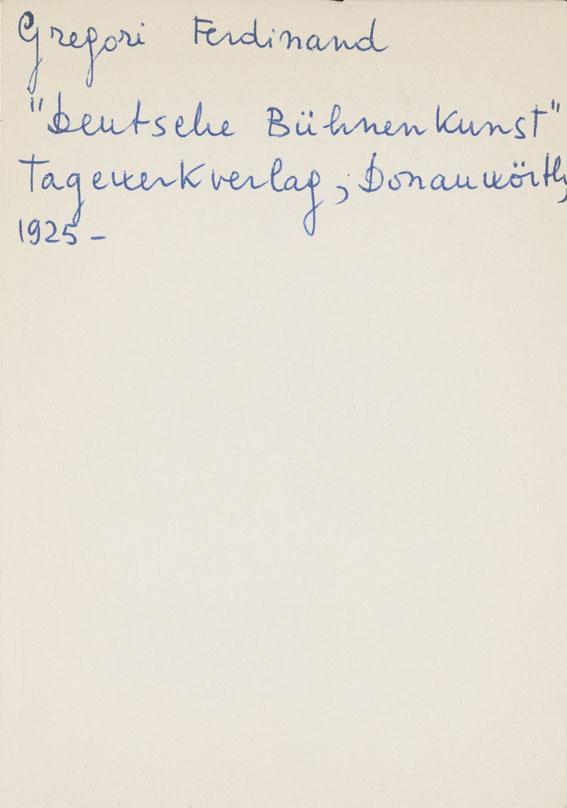 Gregori Ferdinand
"Deutsche Bühnenkunst"
Tagewerkverlag, Donauwörth,
1925 -